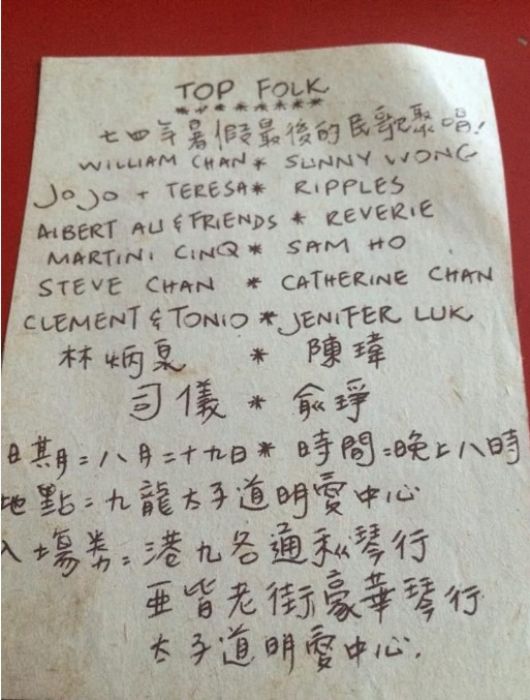 TOP FOLK
* * * * * * * * *
七四年暑假最後的民歌聚唱!
WILLIAM CHAN * SUNNY WONG
JOJO + TERESA * RIPPLES
ALBERT AU & FRIENDS * REVERIE
MARTINI CINQ * SAM HO
STEVE CHAN * CATHERINE CHAN
CLEMENT & TONIO * JENIFER LUK
林炳 * 陳瑋
司儀 * 俞琤
日期=八月二十九日 * 時間=晚上八時
地點=九龍太子道明愛中心
入場券=港九各通利琴行
亞皆老街豪華琴行
太子道明愛中心.